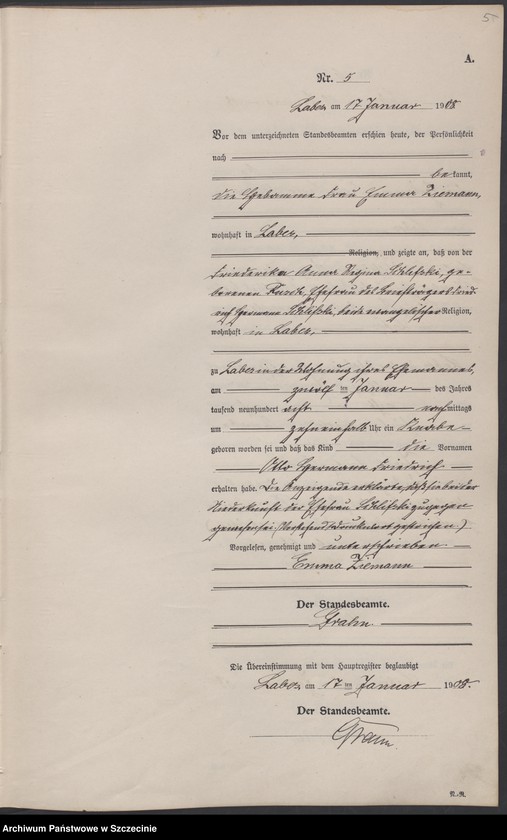 5
A.
Nr. 5
Labes, am 17 Januar 1908.
Vor dem unterzeichneten Standesbeamten erschien heute, der Persönlichkeit
nach
be kannt,
die Hebamme Frau Emma Ziemann,
wohnhaft in Labes,
Religion, und zeigte an, daß von der
Friederike Anna Regina Schlifski, ge-
borenen, Ehefrau des Briefträgers Fried-
rich Hermann Schlifski, beide evangelischer Religion,
wohnhaft in Labes,
zu Labes in der Wohnung ihres Ehemannes,
am zwölf ten Januar des Jahres
tausend neunhundert acht nachmittags
um zehneinhalb Uhr ein Knabe
geboren worden sei und daß das Kind die Vornamen
Otto Hermann Friedrich
erhalten habe. Die Anzeigende erklärte, daß sie bei der
Niederkunft der Ehefrau Schlifski zugegen
gewesen sei. (Vorstehend 1 Druckwort gestrichen.)
Vorgelesen, genehmigt und unterschrieben
Emma Ziemann
Der Standesbeamte.
Grahn.
Die Übereinstimmung mit dem Hauptregister beglaubigt
Labes, am 17 ten Januar 1908.
Der Standesbeamte.
Grahn.
N.-R.
Archiwum Państwowe w Szczecinie